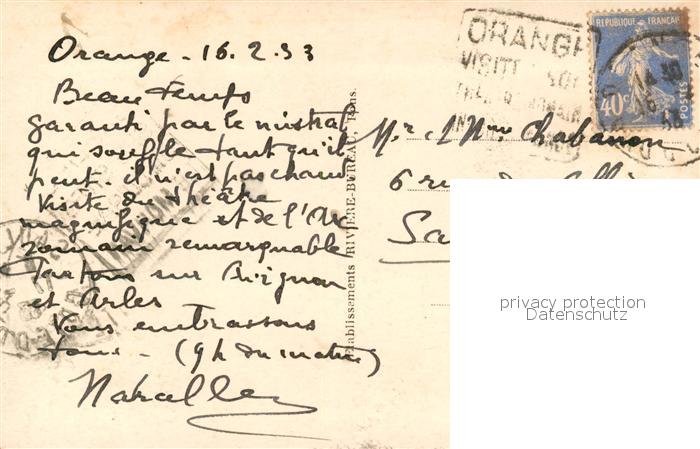 Orange - 16.2.33
Beau temps
garanti par le mistral
qui souffle tant qu'il
peut. il n'est pas chaud
Visite du théâtre
magnifique et de l'Arc
romain remarquable
Partons sur Avignon
et Arles
Vous embrassons
tous - (9h du matin)
ORANGE
VISITEZ SON
40c
REPUBLIQUE FRANÇAISE
POSTES
Mr & Mme Chabanon
6 rue de
Sa
Etablissements RIVIÈRE-BUREAU, Tours.
privacy protection
Datenschutz